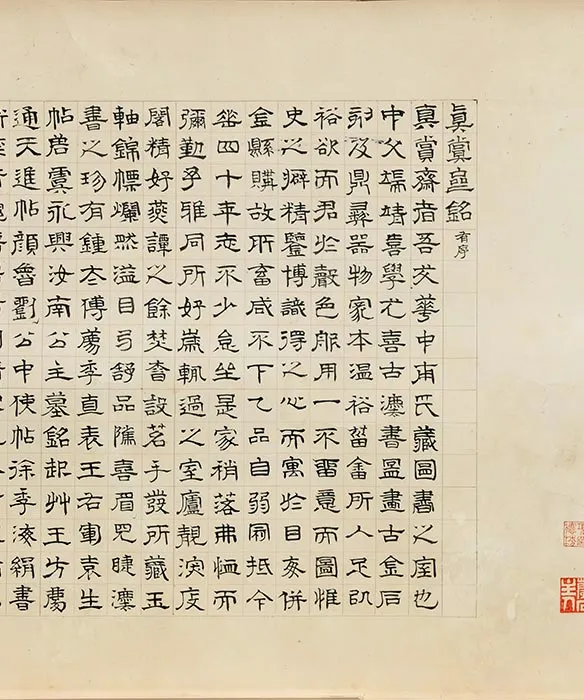 真賞齋銘 有序
真賞齋者吾友華中甫氏藏圖書之室也
中父端靖喜學尤喜古灋書圖畫古金石
刻及鼎彝器物家本溫裕菑畬所入足以
裕欲而君於聲色服用一不留意而圖惟
史之癖精鑒博識得之心而寓於目每併
金懸購故所畜咸不下乙品自弱冏抵今
垂四十年志不少怠坐是家稍落弗恤而
彌勤予雅同所好歲輒過之室廬靚深庋
閣精好讌譚之餘焚香設茗手發所藏玉
軸錦幖爛然溢目弓舒品隲喜眉見睫灋
書之珍有鍾太傅薦季直表王右軍袁生
帖唐虞永興汝南公主墓銘起艸王方慶
通天進帖顏魯劉公中使帖徐季海絹書